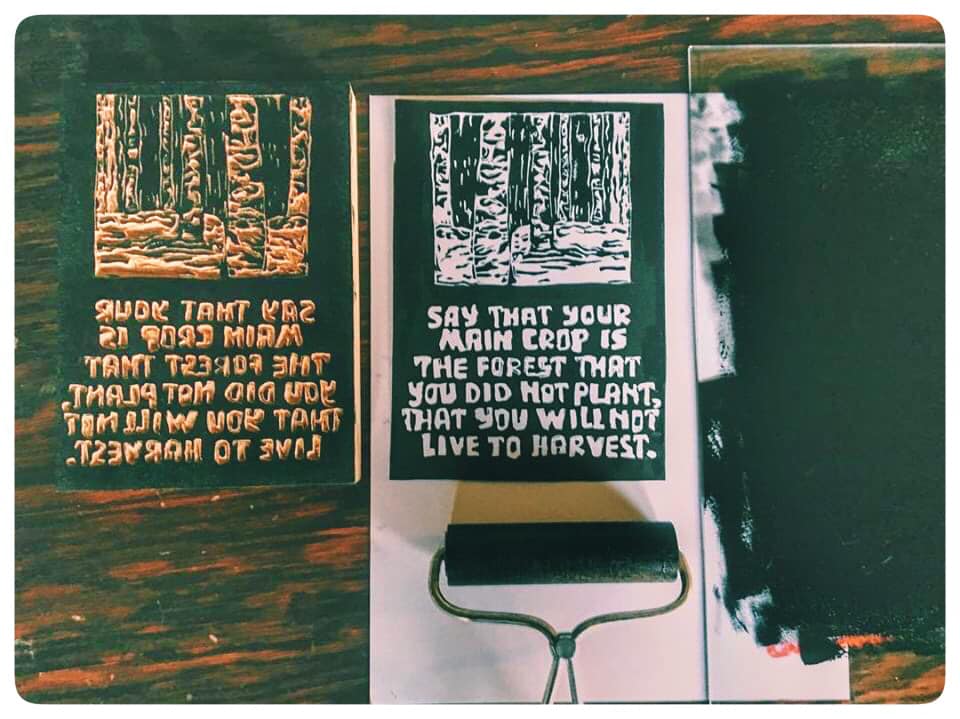 SAY THAT YOUR
MAIN CROP IS
THE FOREST THAT
YOU DID NOT PLANT,
THAT YOU WILL NOT
LIVE TO HARVEST.
SAY THAT YOUR
MAIN CROP IS
THE FOREST THAT
YOU DID NOT PLANT,
THAT YOU WILL NOT
LIVE TO HARVEST.